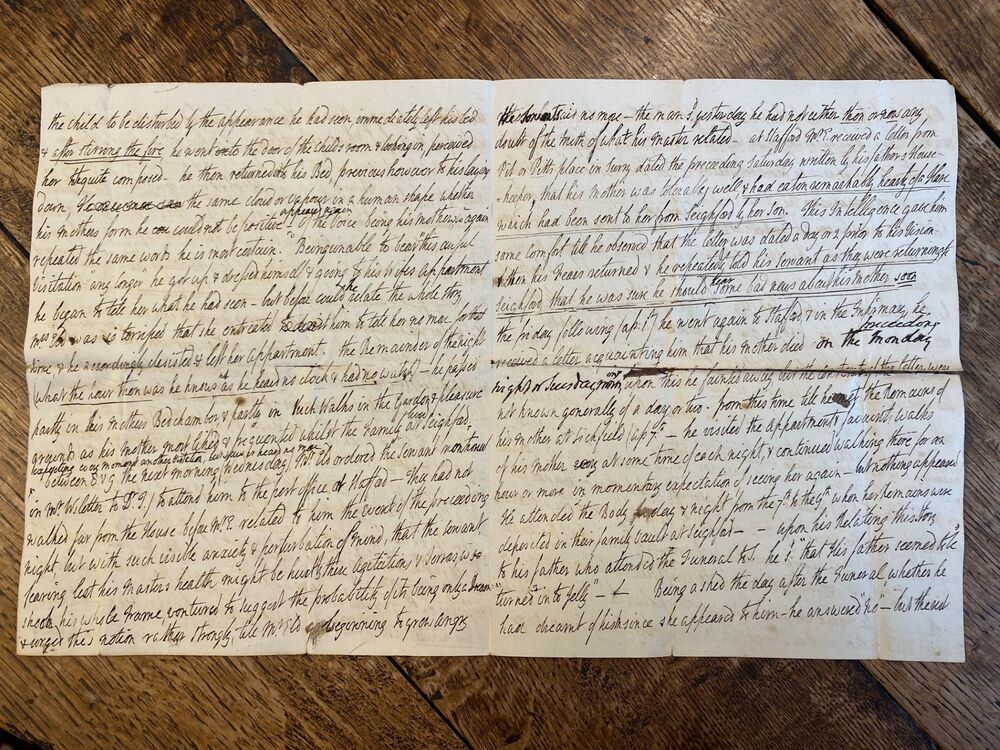 the child to be disturbed by the appearance he had seen immediately left his bed
& after stirring the fire he went to the door of the child's room & looking in, perceived
her to be quite composed – he then returned to his Bed, previous however to his laying
down, the same cloud or vapour in a human shape whether
appeared again
his mothers form he could not be positive of the voice being his mothers & again
repeated the same words he is most certain. Being unable to bear this awful
Visitation any longer he got up & dressed himself & going to his wifes appartment
he began to tell her what he had seen – but before he could relate the whole story
Mrs was so terrified that he entreated him to tell her no more for that
time & he accordingly desisted & left her appartment. the Remainder of the night
(what the hour then was he knows not as he heard no clock & had no watch) – he passed
partly in his mothers Bedchamber & partly in such Walks in the Garden & pleasure
ground as his mother most liked & frequented whilst the Family at Seighford
expecting every moment another visitation but saw or heard no more
between 8 & 9 the next morning (Wednesday) he ordered the Servant mentioned
in Mrs W's letter to attend him to the post office at Stafford – They had not
walked far from the House before Mr E related to him the event of the preceeding
night but with such visible anxiety & perturbation of mind, that the servant
fearing lest his Masters health might be hurt by these agitations & Terrors wch
shook his whole frame, ventured to suggest the probability of its being only a Dream
& urged this notion rather strongly till Mr E's beginning to grow angry
the Servant said no more – the man sd yesterday he had not either then or now any
doubt of the truth of what his master related – at Stafford Mr E received a letter from
Pit or Pitts place in Surry dated the preceeding Saturday written by his fathers House-
keeper, that his mother was tolerably well & had eaten remarkably hearty of a Hare
which had been sent to her from Seighford by her Son. This Intelligence gave him
some comfort till he observed that the letter was dated a day or 2 prior to his Vision
& then his Fears returned & he repeatedly told his servant as they were returning to
Seighford that he was sure he should hear some bad news about his mother soon
the friday following (ap: 1st) he went again to Stafford & in the Infirmary he
received a letter acquainting him that his mother died on the Monday preceeding
night or Tuesday morng upon this he fainted away but the contents of the letter were
not known generally of a day or two. from this time till he met the Remains of
his mother at Lichfield (ap 7th – he visited the Appartments & favourite walks
of his mother at some time of each night, & continued walking there for an
hour or more in momentary expectation of seeing her again – but nothing appeared
He attended the Body day & night from the 7th to the 9th when her Remains were
deposited in their family Vault at Seighford – upon his Relating this story
to his father who attended the Funeral he sd "that His father seemed to be
"turned into Jelly" – Being asked the day after the Funeral whether he
had dreamt of his since she appeared to him – he answered "no" – but the